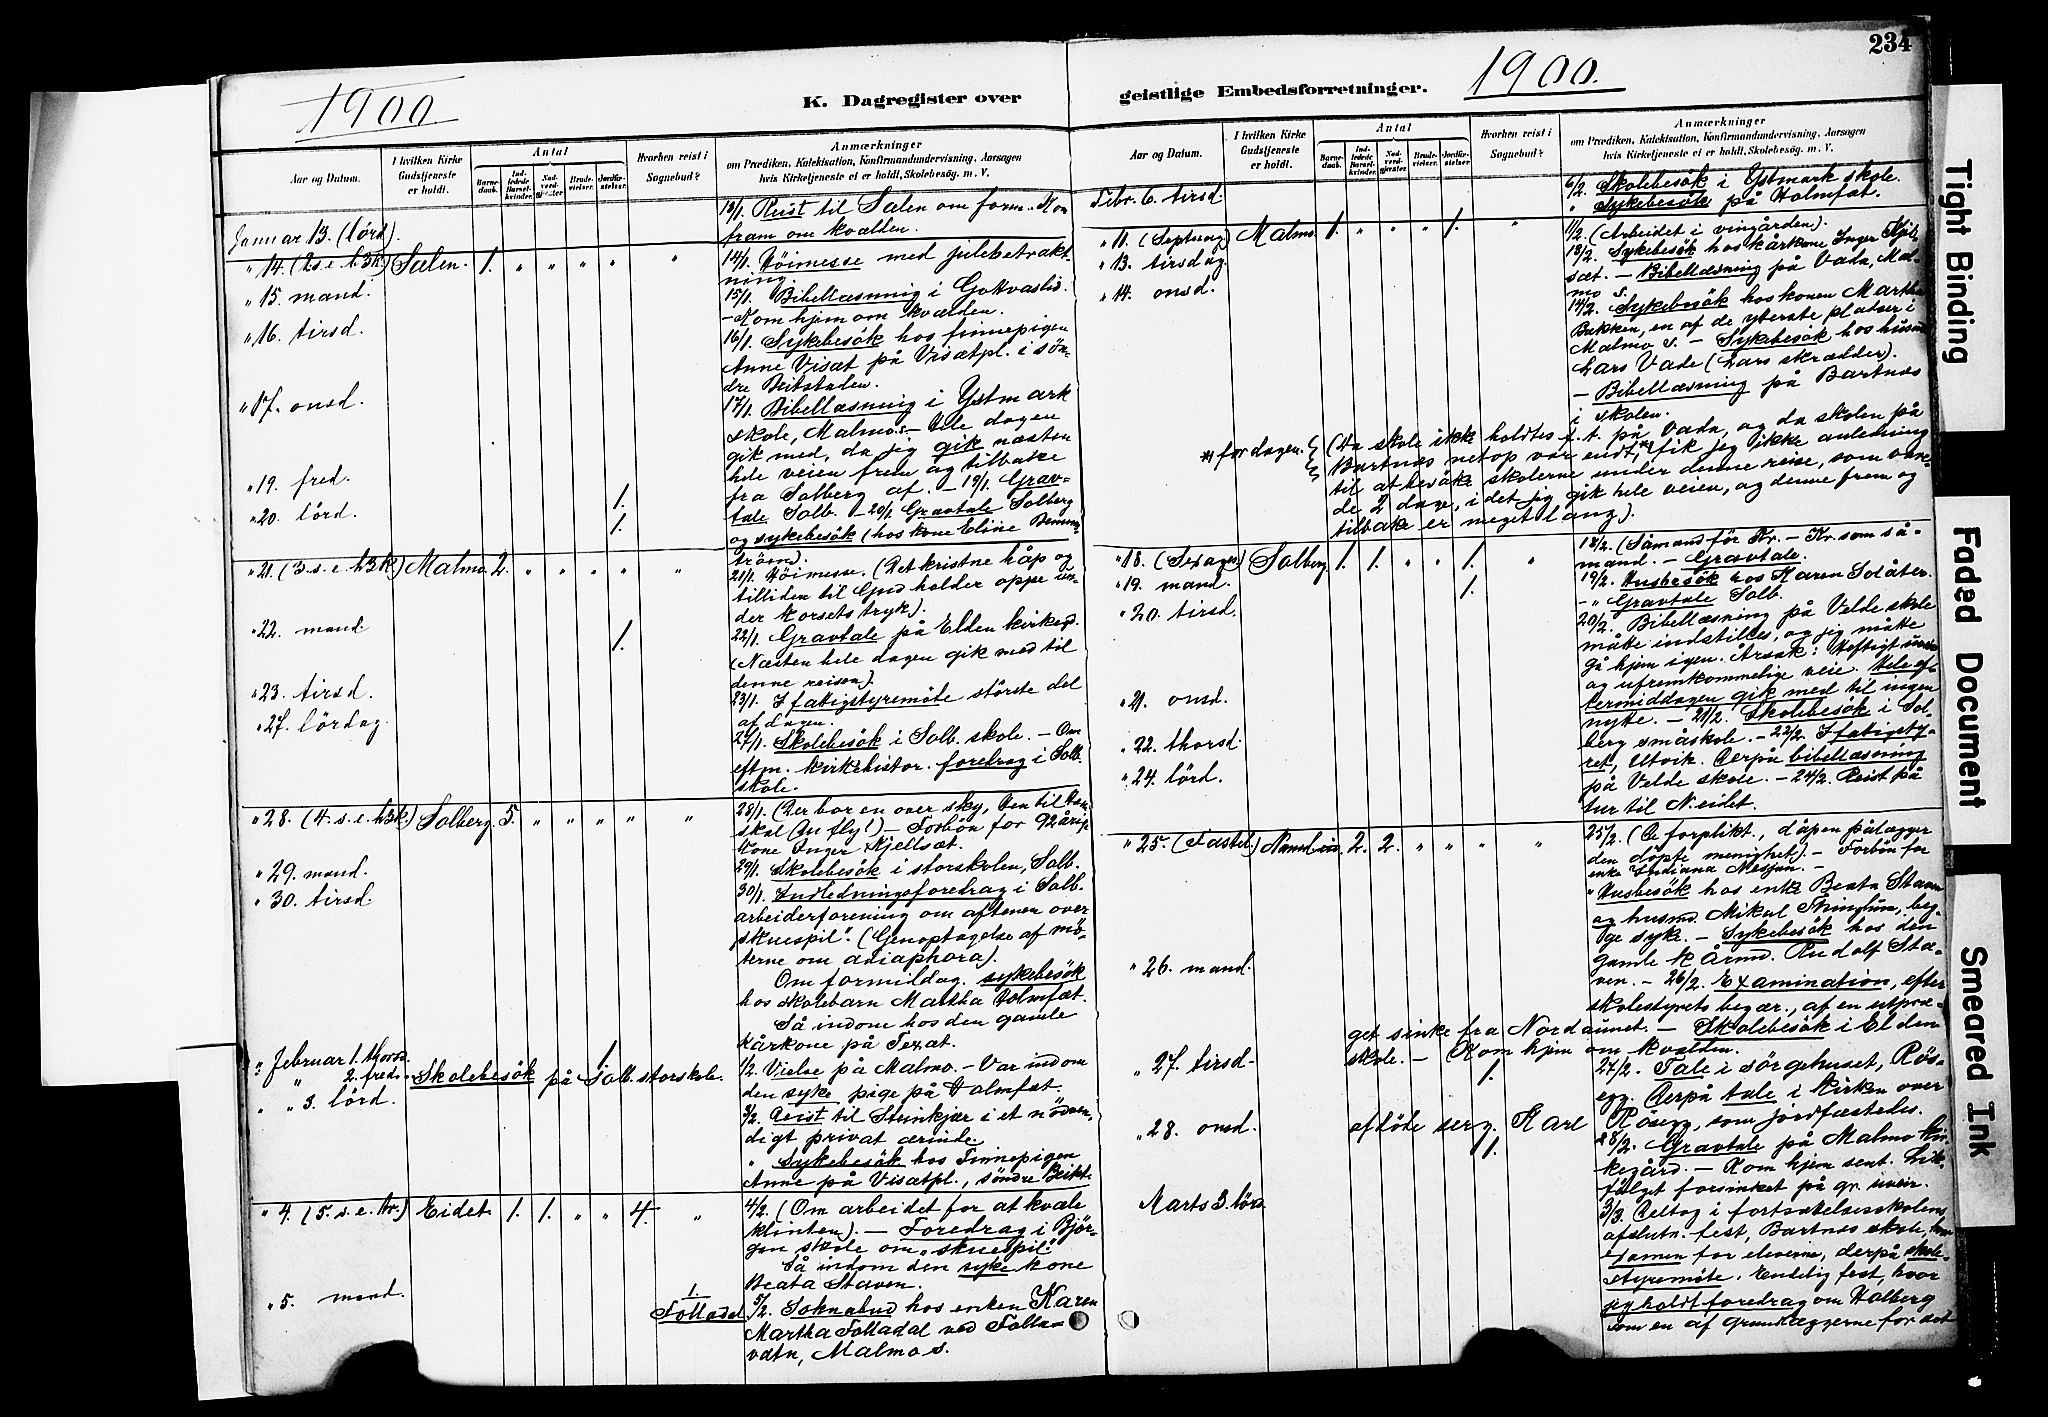 234
1900.
K. Dagregister over
geistlige Embedsforretninger.
1900.
Aar og Datum.
I hvilken Kirke Gudstjeneste er holdt.
Antal
Barnedaab.
Indledede Barselkvinder.
Nadverdgjester
Brudevielser.
Jordfæstelser.
Hvorhen reist i Sognebud?
Anmærkninger
om Prædiken, Katekisation, Konfirmandundervisning, Aarsagen
hvis Kirketjeneste ei er holdt, Skolebesøg. m. V.
Januar 13. (lørd).
13/1. Reist til Sælen om form. Kom
fram om kvælden.
" 14. (2 s. e. h3k.) Sælen. 1. " " " " "
14/1. Höimesse med julebetrakt-
ning.
" 15. mand.
15/1. Bibellæsning i Gottvaslid.
- Kom hjem om kvælden.
" 16. tirsd.
16/1. Sykebesök hos finnepigen
Anne Visæt på Visætpl. i sön-
dre Beitstaden.
" 17. onsd.
17/1. Bibellæsning i Ystmark
skole, Malmo s. - Hele dagen
gik med, da jeg gik næsten
hele veien frem og tilbake
" 19. fred. 1.
fra Solberg af. - 19/1. Grav-
" 20. lörd. 1.
tale Solb. - 20/1. Gravtale Solberg
og sykebesök (hos kone Eline
tröm).
" 21. (3 s. e. h3k.) Malmo. 2. " " " " "
21/1. Höimesse. (Det kristne håp og
tilliden til Gud holder oppe un-
der korsets tryk).
" 22. mand 1.
22/1. Gravtale på Elden kirkegd.
(Næsten hele dagen gik med til
denne reisen).
" 23. tirsd.
23/1. I fattigstyremöte störste del
af dagen.
" 27. lördag.
27/1. Skolebesök i Solb. skole. - Om
eftm. kirkehistor. foredrag i Solb.
skole.
" 28. (4. s. e. h3k.) Solberg. 5. " " " " "
28/1. (Der bor en over sky, Den til ham
skal du fly!) - Forbön for 92 årige
kone Inger Kjellsæt.
" 29. mand.
29/1. Skolebesök i storskolen, Solb.
" 30. tirsd.
30/1. Indledningsforedrag i Solb.
arbeiderforening om aftenen over
"skuespil". (Genoptagelse af mö-
terne om adiaphora).
Om formiddag. sykebesök
hos skolebarn Martha Holmfæt.
Så indom hos den gamle
kårkone på Texat.
" Februar 1. thorsd. 1.
1/2. Vielse på Malmo. - Var indom
den syke pige på Holmfæt.
" " 2. fred. Skolebesök på Solb. storskole.
" " 3. lörd.
3/2. Reist til Steinkjær i et nödven-
digt privat ærinde.
" Sykebesök hos Finnepigen
Anne på Visætpl., söndre Beitst.
" 4. (5. s. e. h.) Eidet 1. 1. " " 4. "
4/2. (Om arbeidet for at kvæle
klinten). - Foredrag i Björ-
gan skole om "skuespil".
Så indom den syke kone
Beata Staven.
" 5. mand.
1. Folladal.
5/2. Soknebud hos enken Karen
Martha Folladal ved Folla-
vatn, Malmo s.
Aar og Datum.
I hvilken Kirke Gudstjeneste er holdt.
Antal
Barnedaab.
Indledede Barselkvinder.
Nadverdgjester.
Brudevielser.
Jordfæstelser.
Hvorhen reist i Sognebud?
Anmærkninger
om Prædiken, Katekisation, Konfirmandundervisning, Aarsagen
hvis Kirketjeneste ei er holdt, Skolebesøg. m. V.
Febr. 6. tirsd.
6/2. Skolebesök i Ystmark skole.
" Sykebesök på Holmfæt.
" 11. (Septuag) Malmo. 1. " " " 1. "
11/2. (Arbeidet i vingården).
" 13. tirsdag.
13/2. Sykebesök hos kårkone Inger Kjil-
sæt. - Bibellæsning på Vada, Mal-
mo s.
" 14. onsd.
14/2. Sykebesök hos konen Martha
Bakken, en af de yterste platser i
Malmo s. - Sykebesök hos husmd.
Lars Vade (Lars skrædder).
- Bibellæsning på Bartnæs
i skolen.
*) for dagen.
(Da skole ikke holdtes f. t. på Vada, og da skolen på
Bartnæs netop var endt,*) fik jeg ikke anledning
til at besöke skolerne under denne reise, som vare-
de 2 dage, idet jeg gik hele veien, og denne frem og
tilbake er meget lang).
" 18. (Sexages) Solberg 1. 1. " " 1. "
18/2. (Såmand för Kr. - Kr. som så-
mand. - Gravtale.
" 19. mand. 1.
19/2. Husbesök hos Karen Solåter.
- " Gravtale Solb.
" 20. tirsd.
20/2. Bibellæsning på Velde skole
måtte indstilles, og jeg måtte
gå hjem igen. Årsak: Heftigt uveir
og ufremkommelige veie. Hele ef-
termiddagen gik med til ingen
" 21. onsd.
nytte. - 21/2. Skolebesök i Sol-
berg småskole. - 22/2. I fattigsty-
" 22. thorsd.
ret, Utvik. Derpå bibellæsning
" 24. lörd.
på Velde skole. - 24/2. Reist på
tur til N. eidet.
" 25. (Fastel.) 2. 2. " " " "
25/2. (De forplikt., dåpen pålægger
den döpte menighet). - Forbön for
enke Indianna Mosjun. -
" Husbesök hos enke Beata Staven
og husmd. Mikal Thinglum, beg-
ge syke. - Sykebesök hos den
gamle kårmd. Rudolf Sta-
" 26. mand.
ven. - 26/2. Examination, efter
skolestyrets begær., af en utpræ-
get sinke fra Nordaunet. - Skolebesök i Elden
skole. - Kom hjem om kvælden.
" 27. tirsd. 1.
27/2. Tale i sörgehuset, Rös-
egg. Derpå tale i kirken over
afdöde serg. Karl Rösegg, som jordfæstedes.
" 28. onsd. 1.
28/2. Gravtale på Malmo kir-
kegård. - Kom hjem sent. Lik-
fölget forsinket på gr. uveir.
Marts 3. lörd.
3/3. Deltog i fortsættelsesskolens
afslutn. fest, Bartnæs skole,
examen for eleverne, derpå skole-
styremöte. Endelig fest, hvor
jeg holdt foredrag om Holberg
som en af grundlæggerne for det
Tight Binding
Faded Document
Smeared Ink